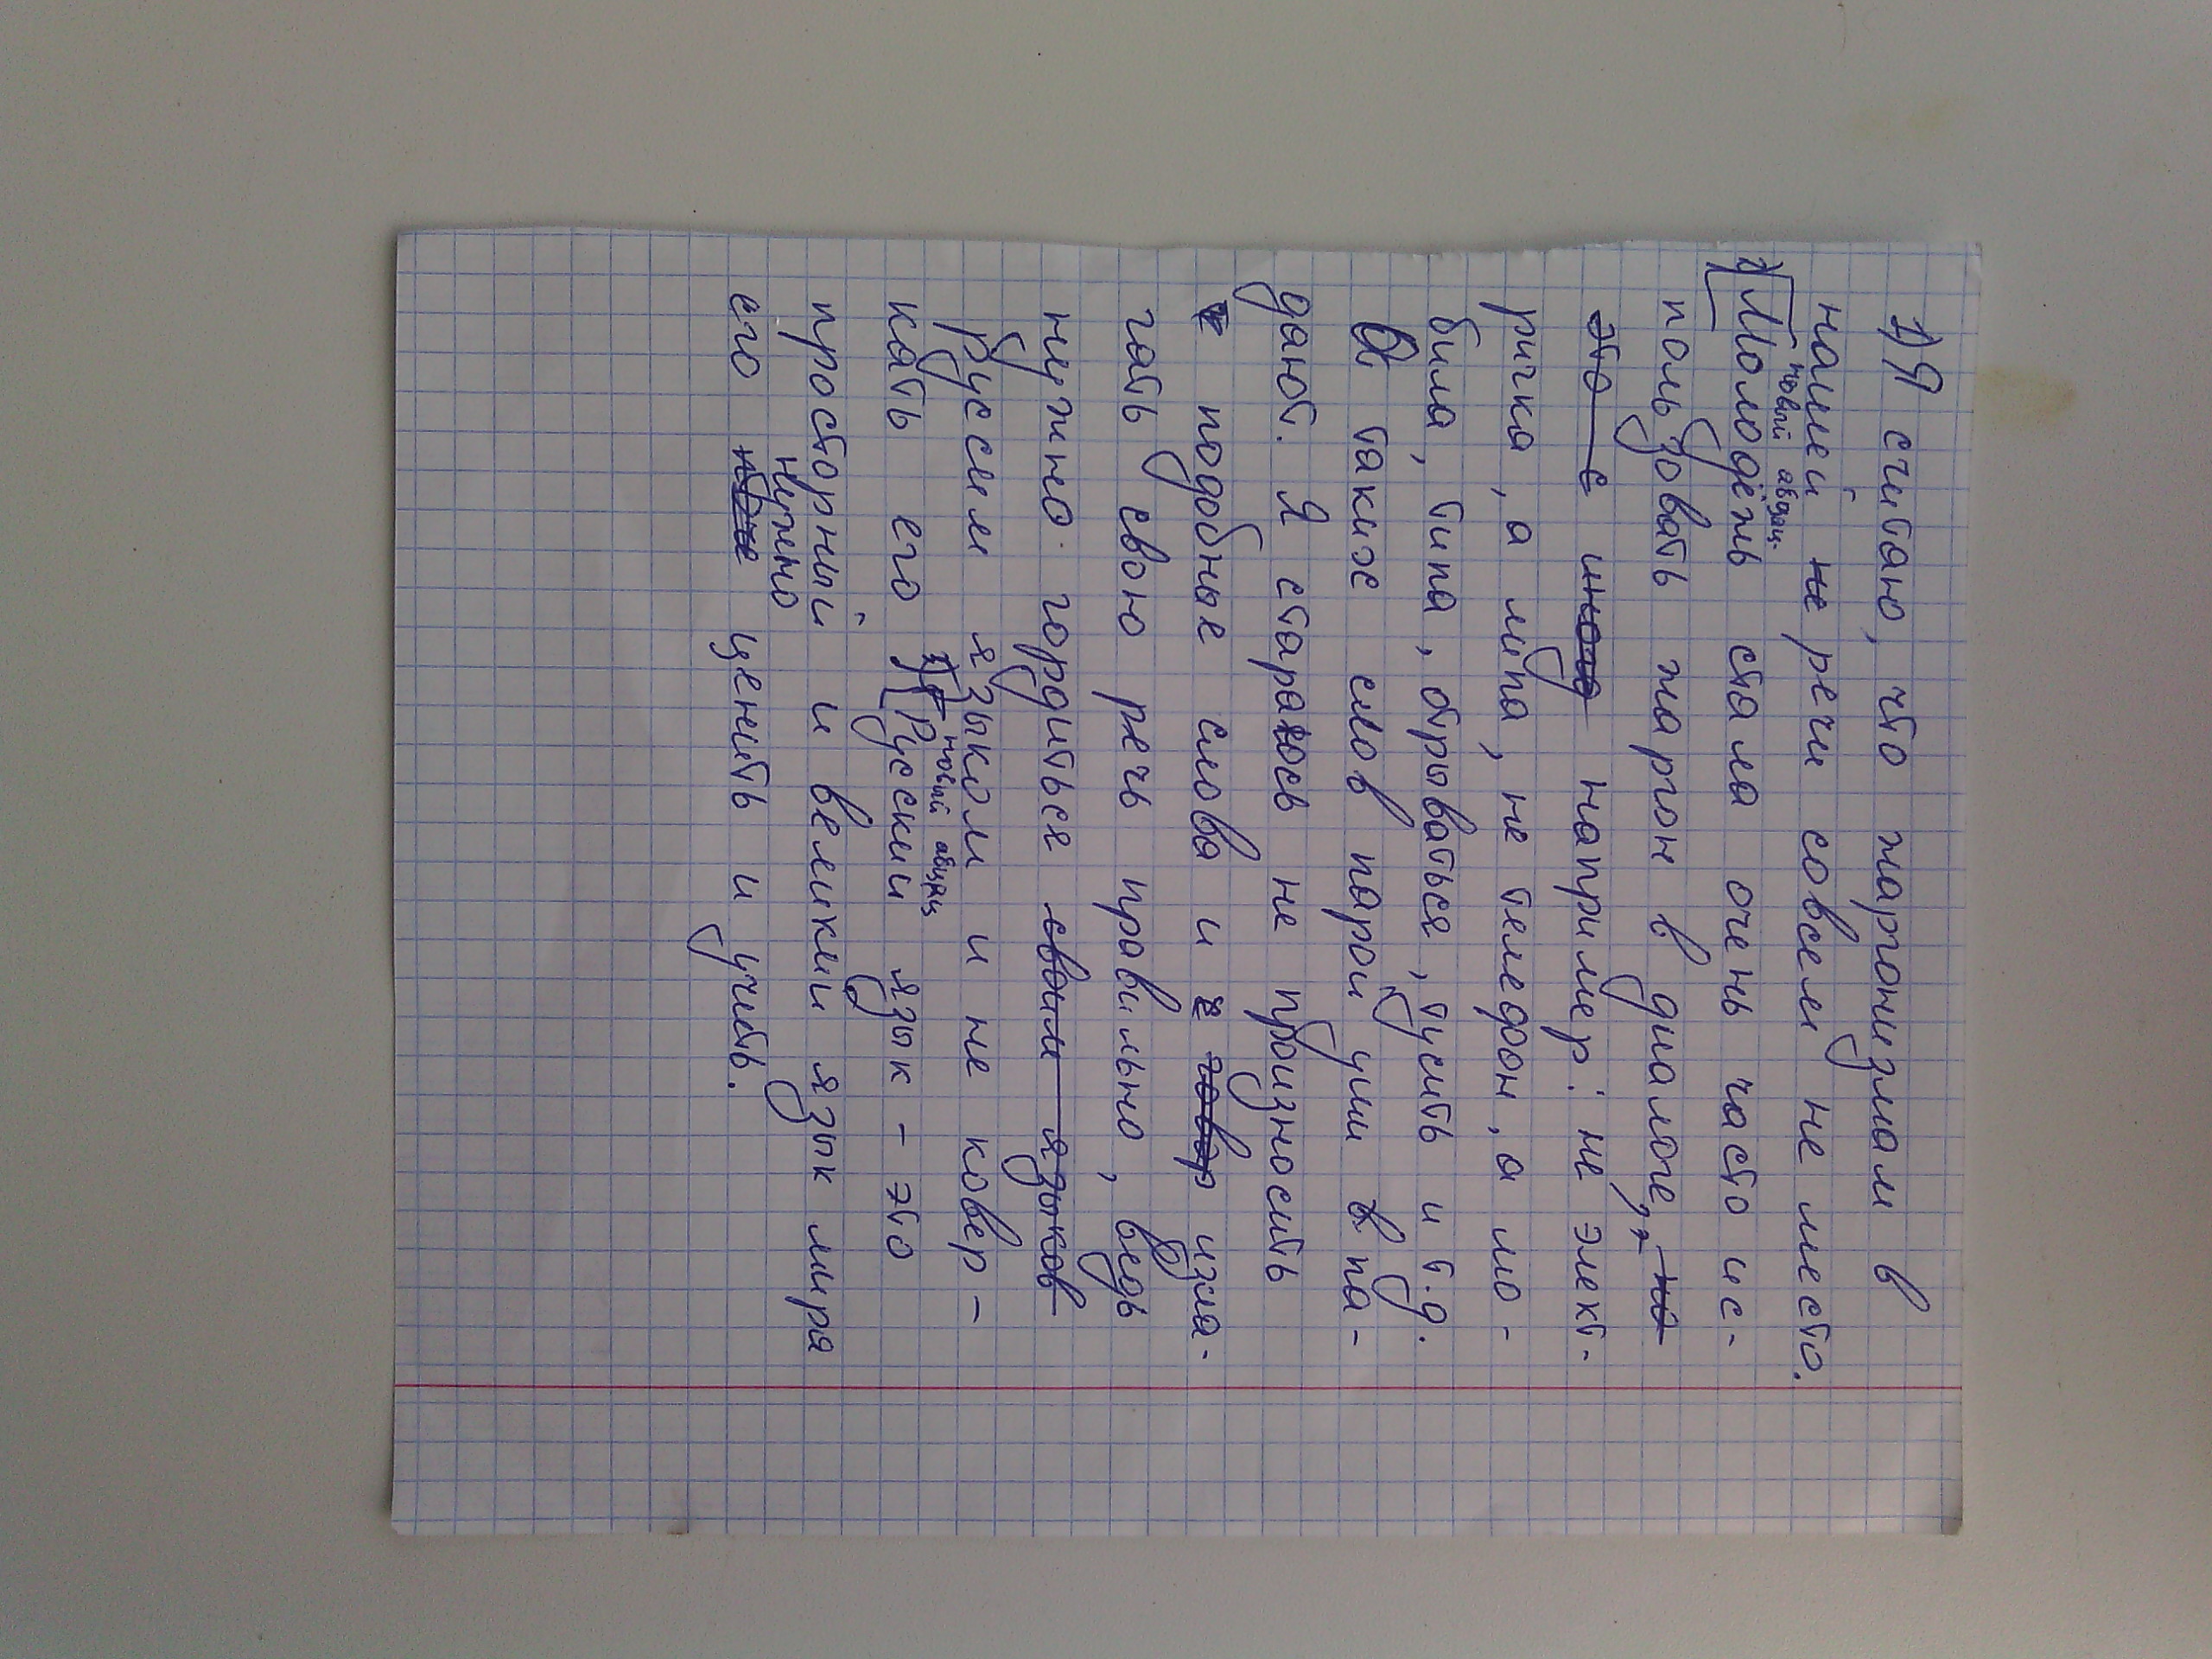 1) Я считаю, что жаргонизмам в
нашей не речи совсем не место.
новый абзац.
2) Молодёжь стала очень часто ис-
пользовать жаргон в диалоге, но
это с иного например: не элект-
ричка, а липа, не телефон, а мо-
била, типа, отрываться, тусить и т.д.
От таких слов парой уши в па-
дают. Я стараюсь не произносить
подобные слова и говор изла-
гать свою речь правильно, ведь
нужно гордиться своим языков
Русским языком и не ковер-
новый абзац
кать его 3) Русский язык - это
просторный и великий язык мира
нужно
его ценить и учить.